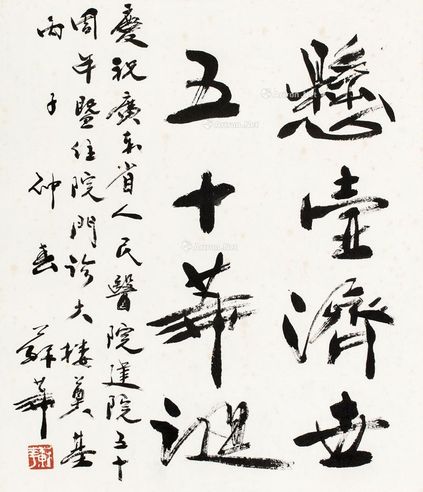 懸壺濟世
五十華誕
慶祝廣东省人民醫院建院五十
周年暨住院門诊大楼奠基
丙子仲春 蘇華